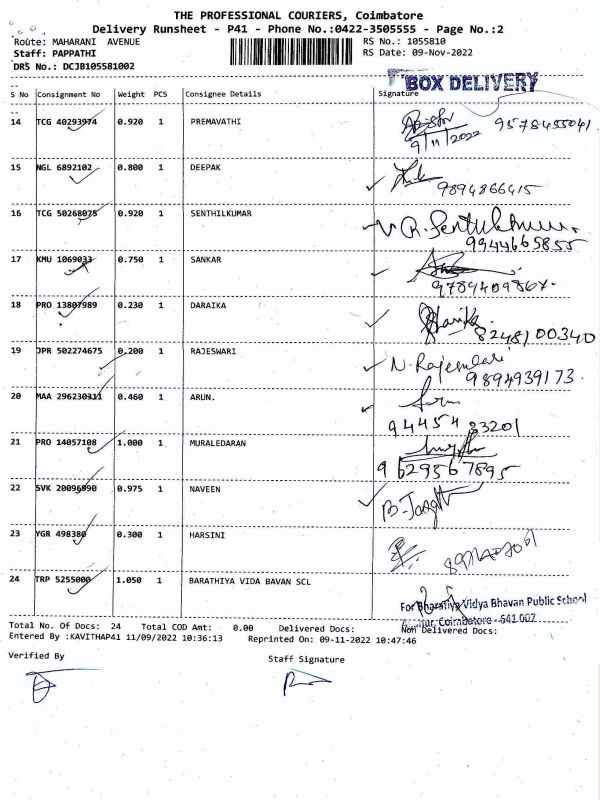 THE PROFESSIONAL COURIERS, Coimbatore
Delivery Runsheet - P41 - Phone No.:0422-3505555 - Page No.:2
Route: MAHARANI AVENUE RS No.: 1055810
Staff: PAPPATHI RS Date: 09-Nov-2022
DRS No.: DCJB105581002
BOX DELIVERY
S No Consignment No Weight PCS Consignee Details Signature
14 TCG 40293974 0.920 1 PREMAVATHI 9578455041
9/11/2022
15 NGL 6892102 0.800 1 DEEPAK
9894866415
16 TCG 50268075 0.920 1 SENTHILKUMAR
9944665855
17 KMU 1069033 0.750 1 SANKAR
9789409867.
18 PRO 13807989 0.230 1 DARAIKA
8248100340
19 JPR 502274675 0.200 1 RAJESWARI N. Rajeswari
9894939173.
20 MAA 296230311 0.460 1 ARUN.
94454 83201
21 PRO 14057108 1.000 1 MURALEDARAN
9629567895
22 SVK 20096990 0.975 1 NAVEEN
23 YGR 498380 0.300 1 HARSINI
24 TRP 5255000 1.050 1 BARATHIYA VIDA BAVAN SCL
For Bharatiya Vidya Bhavan Public School
Coimbatore - 641 007
Total No. Of Docs: 24 Total COD Amt: 0.00 Delivered Docs: Non Delivered Docs:
Entered By :KAVITHAP41 11/09/2022 10:36:13 Reprinted On: 09-11-2022 10:47:46
Verified By Staff Signature